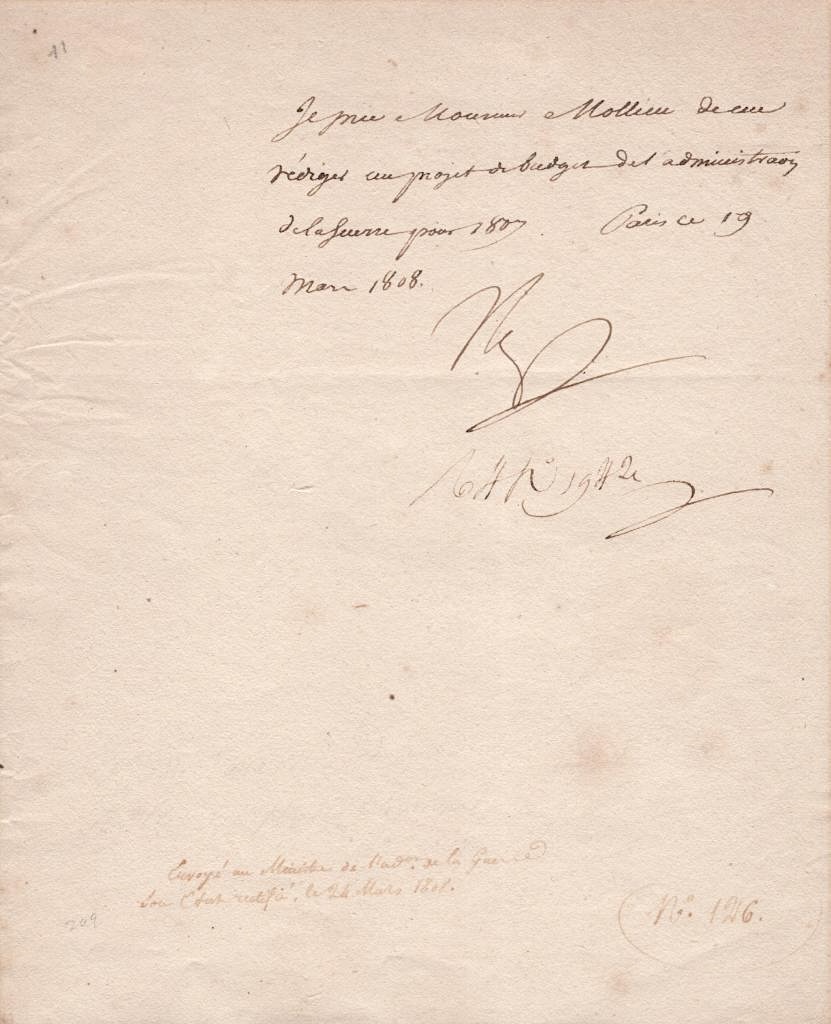 11
Je prie Monsieur Mollien de me
rédiger un projet de budget de l'administraon
de la Guerre pour 1807. Paris ce 19
Mars 1808.
Np
Envoyé au Ministre de l'adon. de la Guerre
Son Etat rectifié. le 24 Mars 1808.
209
No. 126.